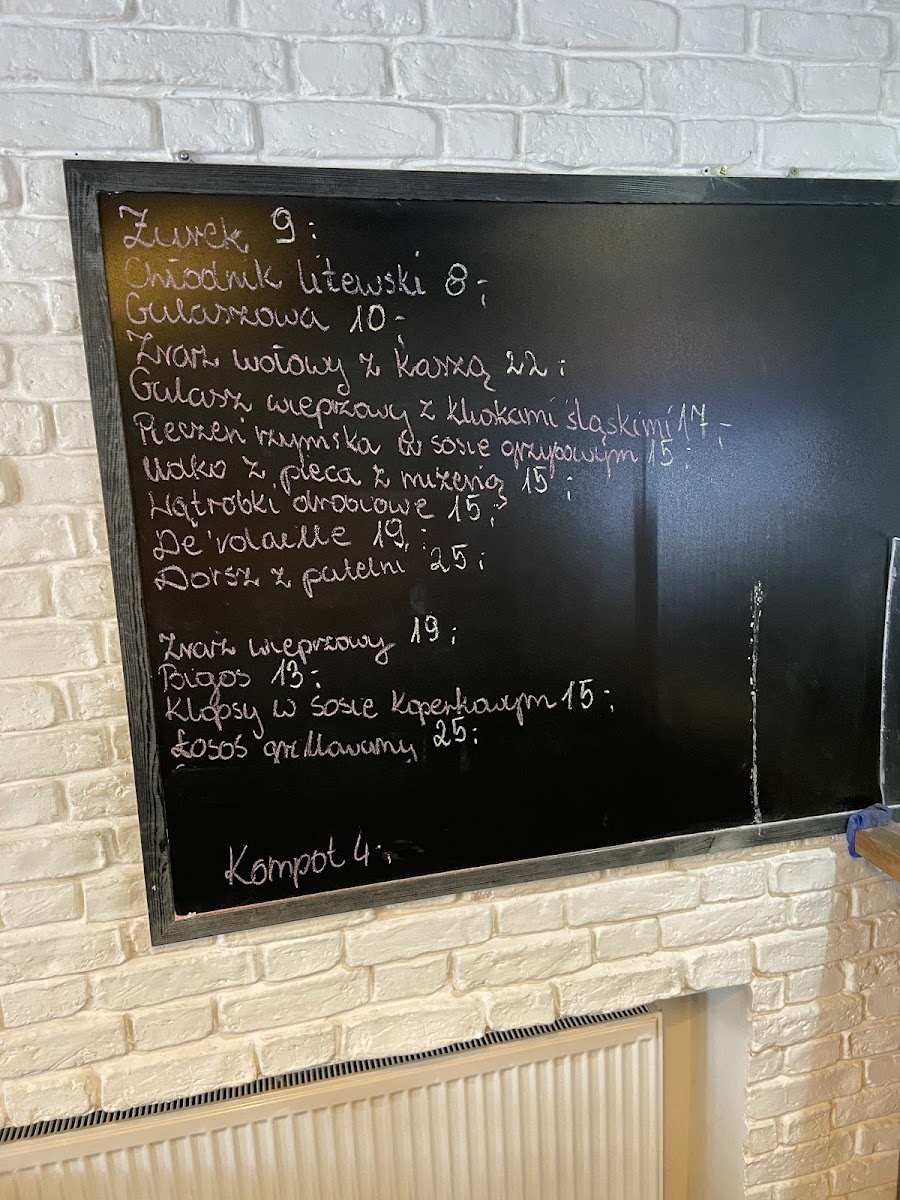 Żurek 9;
Chłodnik litewski 8;
Gulaszowa 10;
Zraz wołowy z kaszą 22;
Gulasz wieprzowy z kluskami śląskimi 17;
Pieczeń rzymska w sosie grzybowym 15;
Udko z pieca z mizerią 15;
Wątróbki drobiowe 15;
De'volaille 19;
Dorsz z patelni 25;
Zraz wieprzowy 19;
Bigos 13;
Klopsy w sosie koperkowym 15;
Łosoś grillowany 25;
Kompot 4;